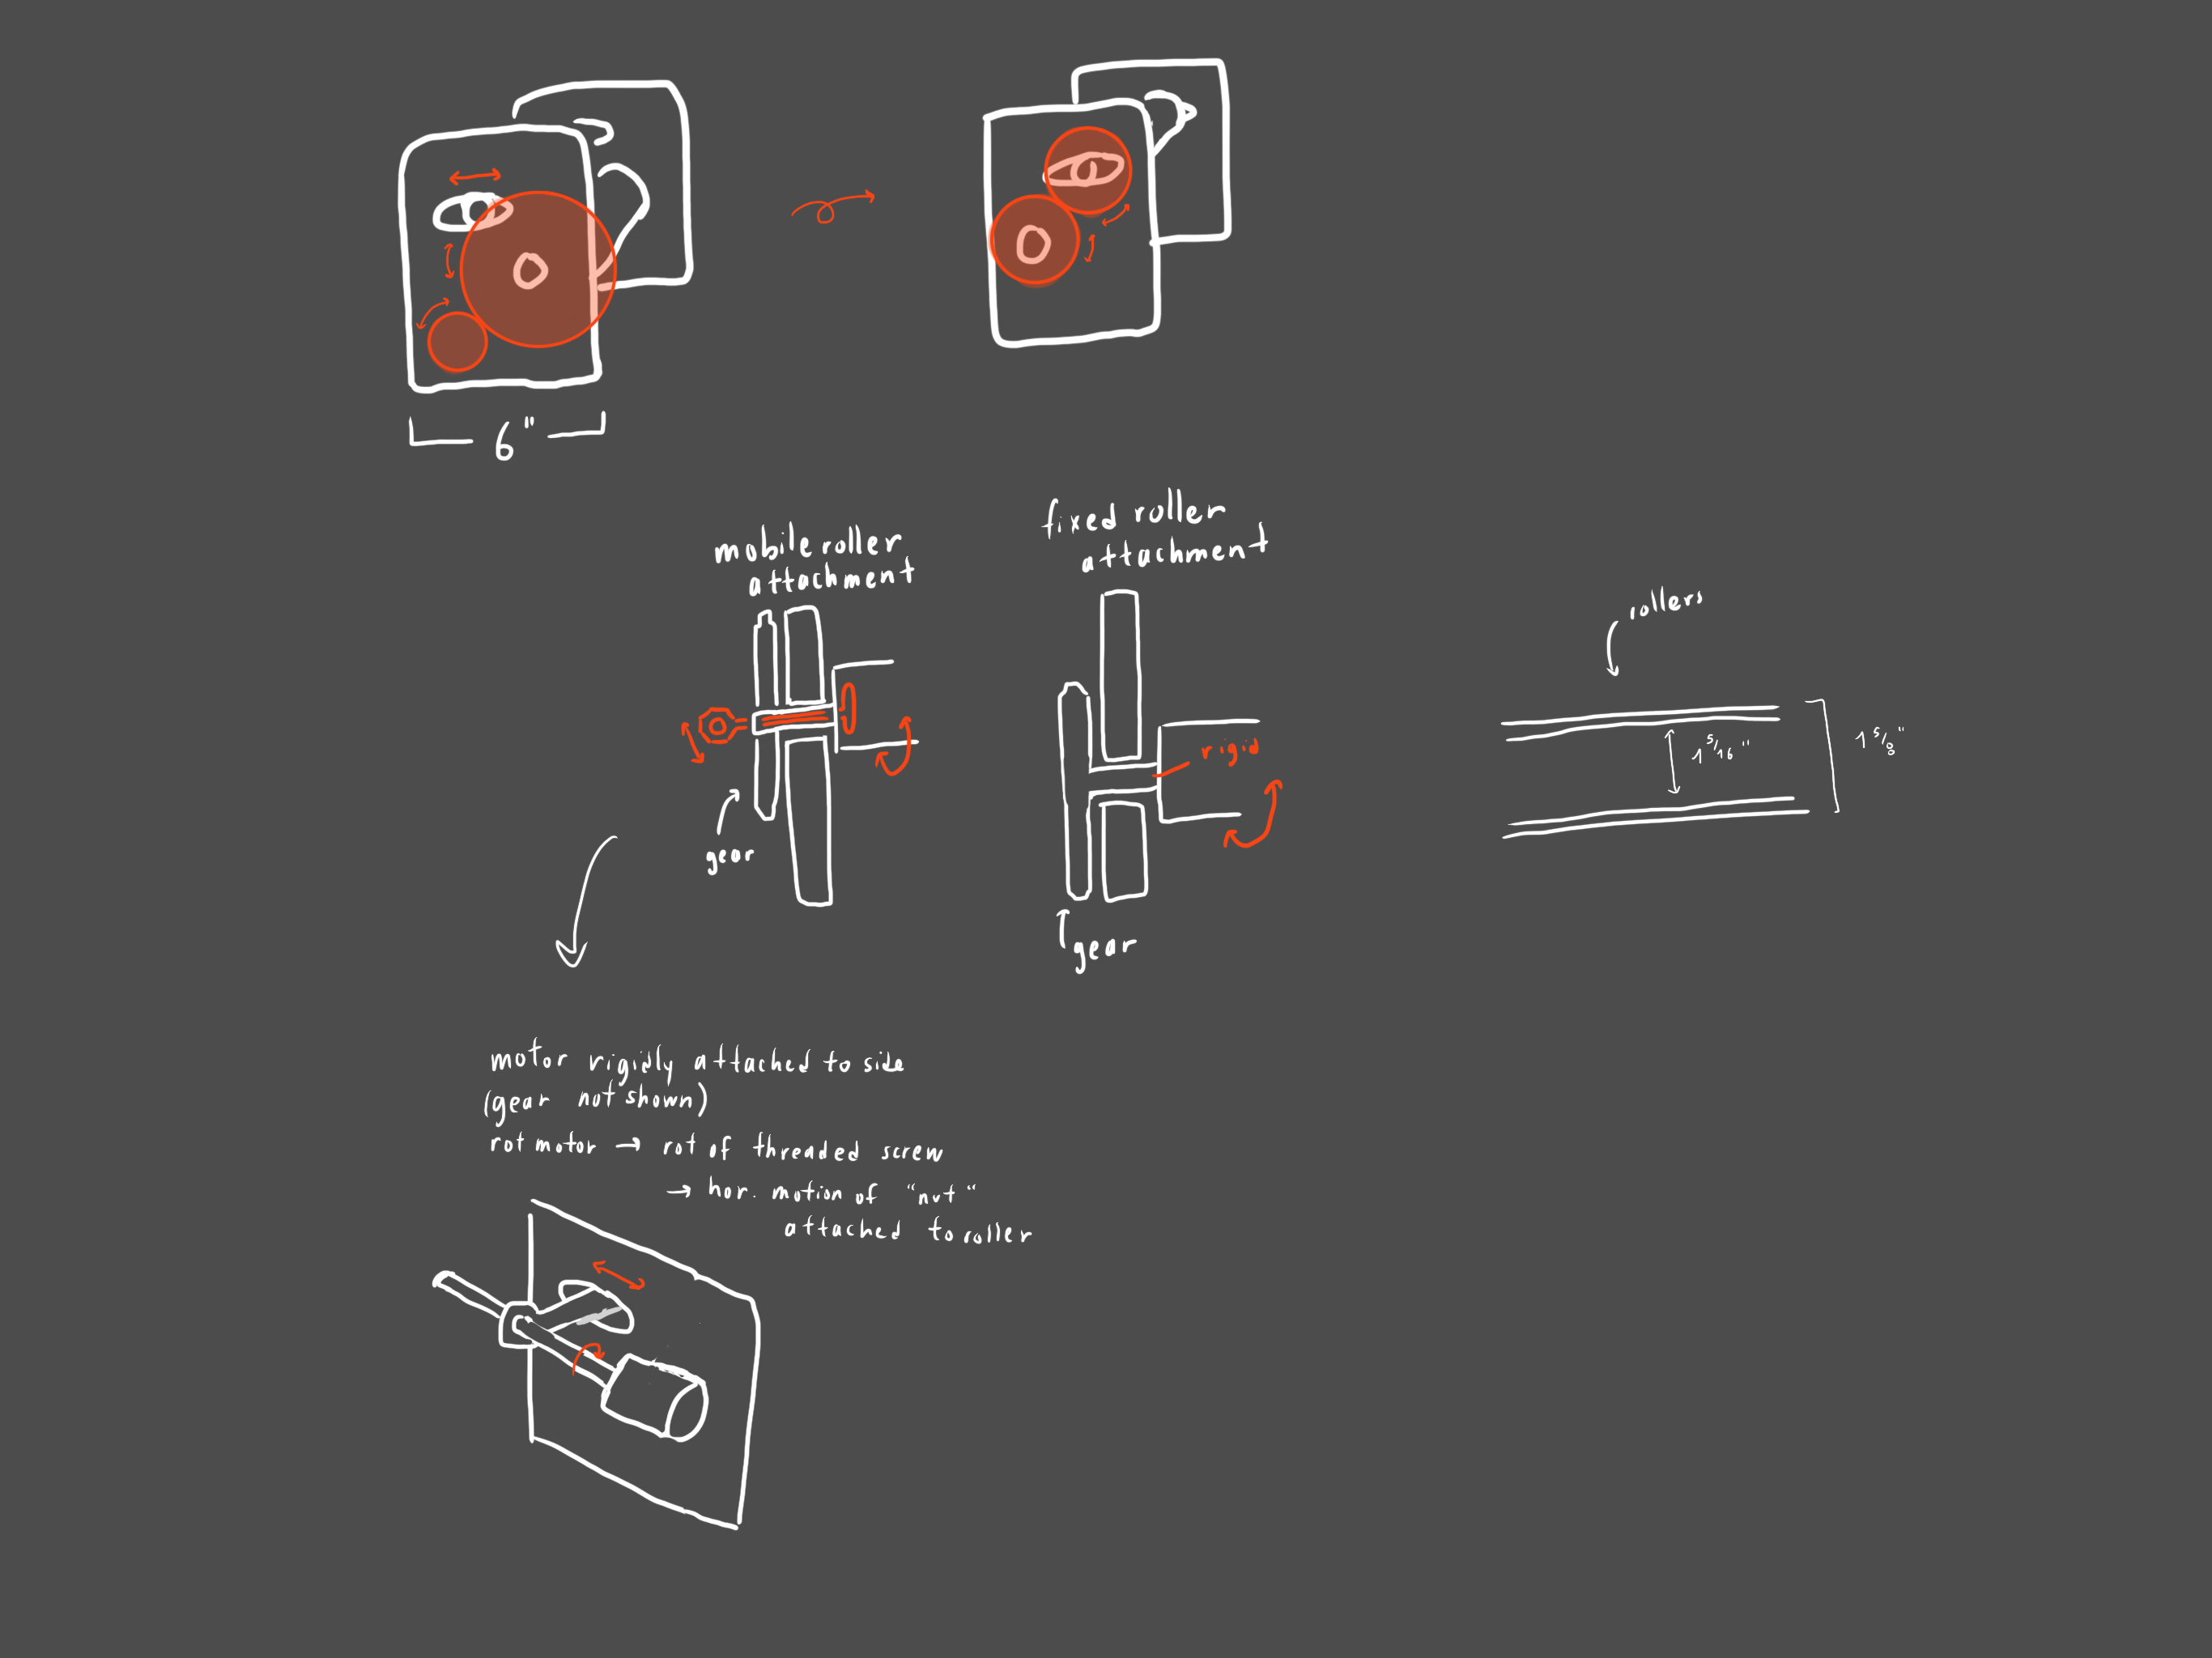 6"
mobile roller
attachment
fixed roller
attachment
rollers
rigid
1 5/16"
1 5/8"
gear
gear
motor rigidly attached to side
(gear not shown)
rot motor → rot of threaded screw
→ hor. motion of "nut"
attached to roller